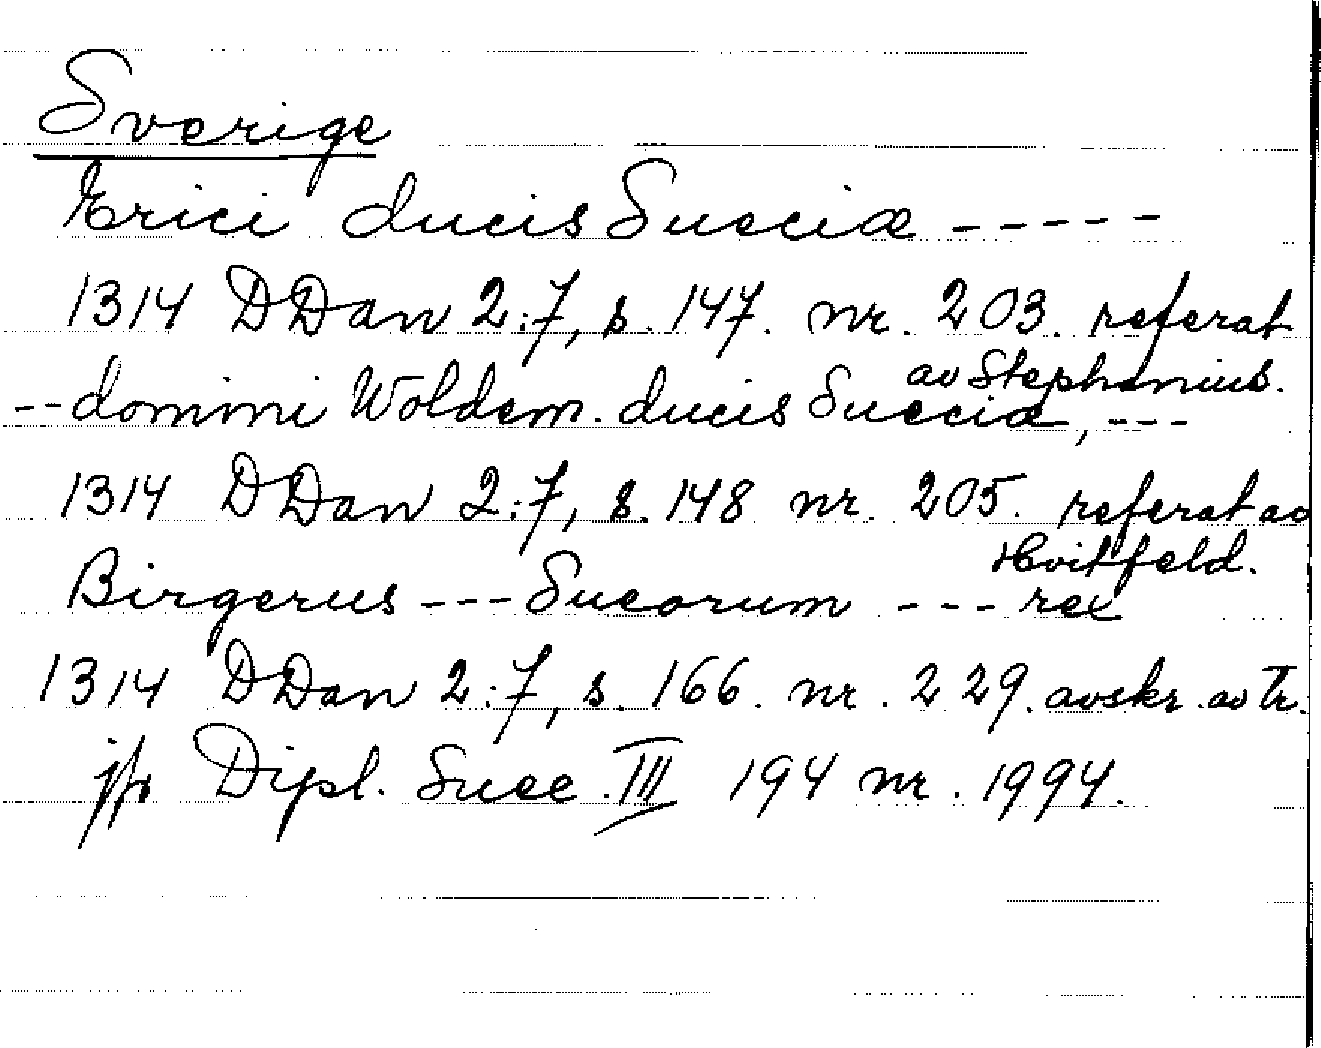 Sverige
Erici ducis Sueciæ - - - - -
1314 DDan 2:7, s. 147. nr. 203. referat
av Stephanius.
-- domini Woldem. ducis Sueciæ, ---
1314 DDan 2:7, s. 148 nr. 205. referat av
Hvitfeld.
Birgerus --- Sueorum --- rex
1314 DDan 2:7, s. 166. nr. 229. avskr. av tr.
jfr Dipl. Suec. III 194 nr. 1994.